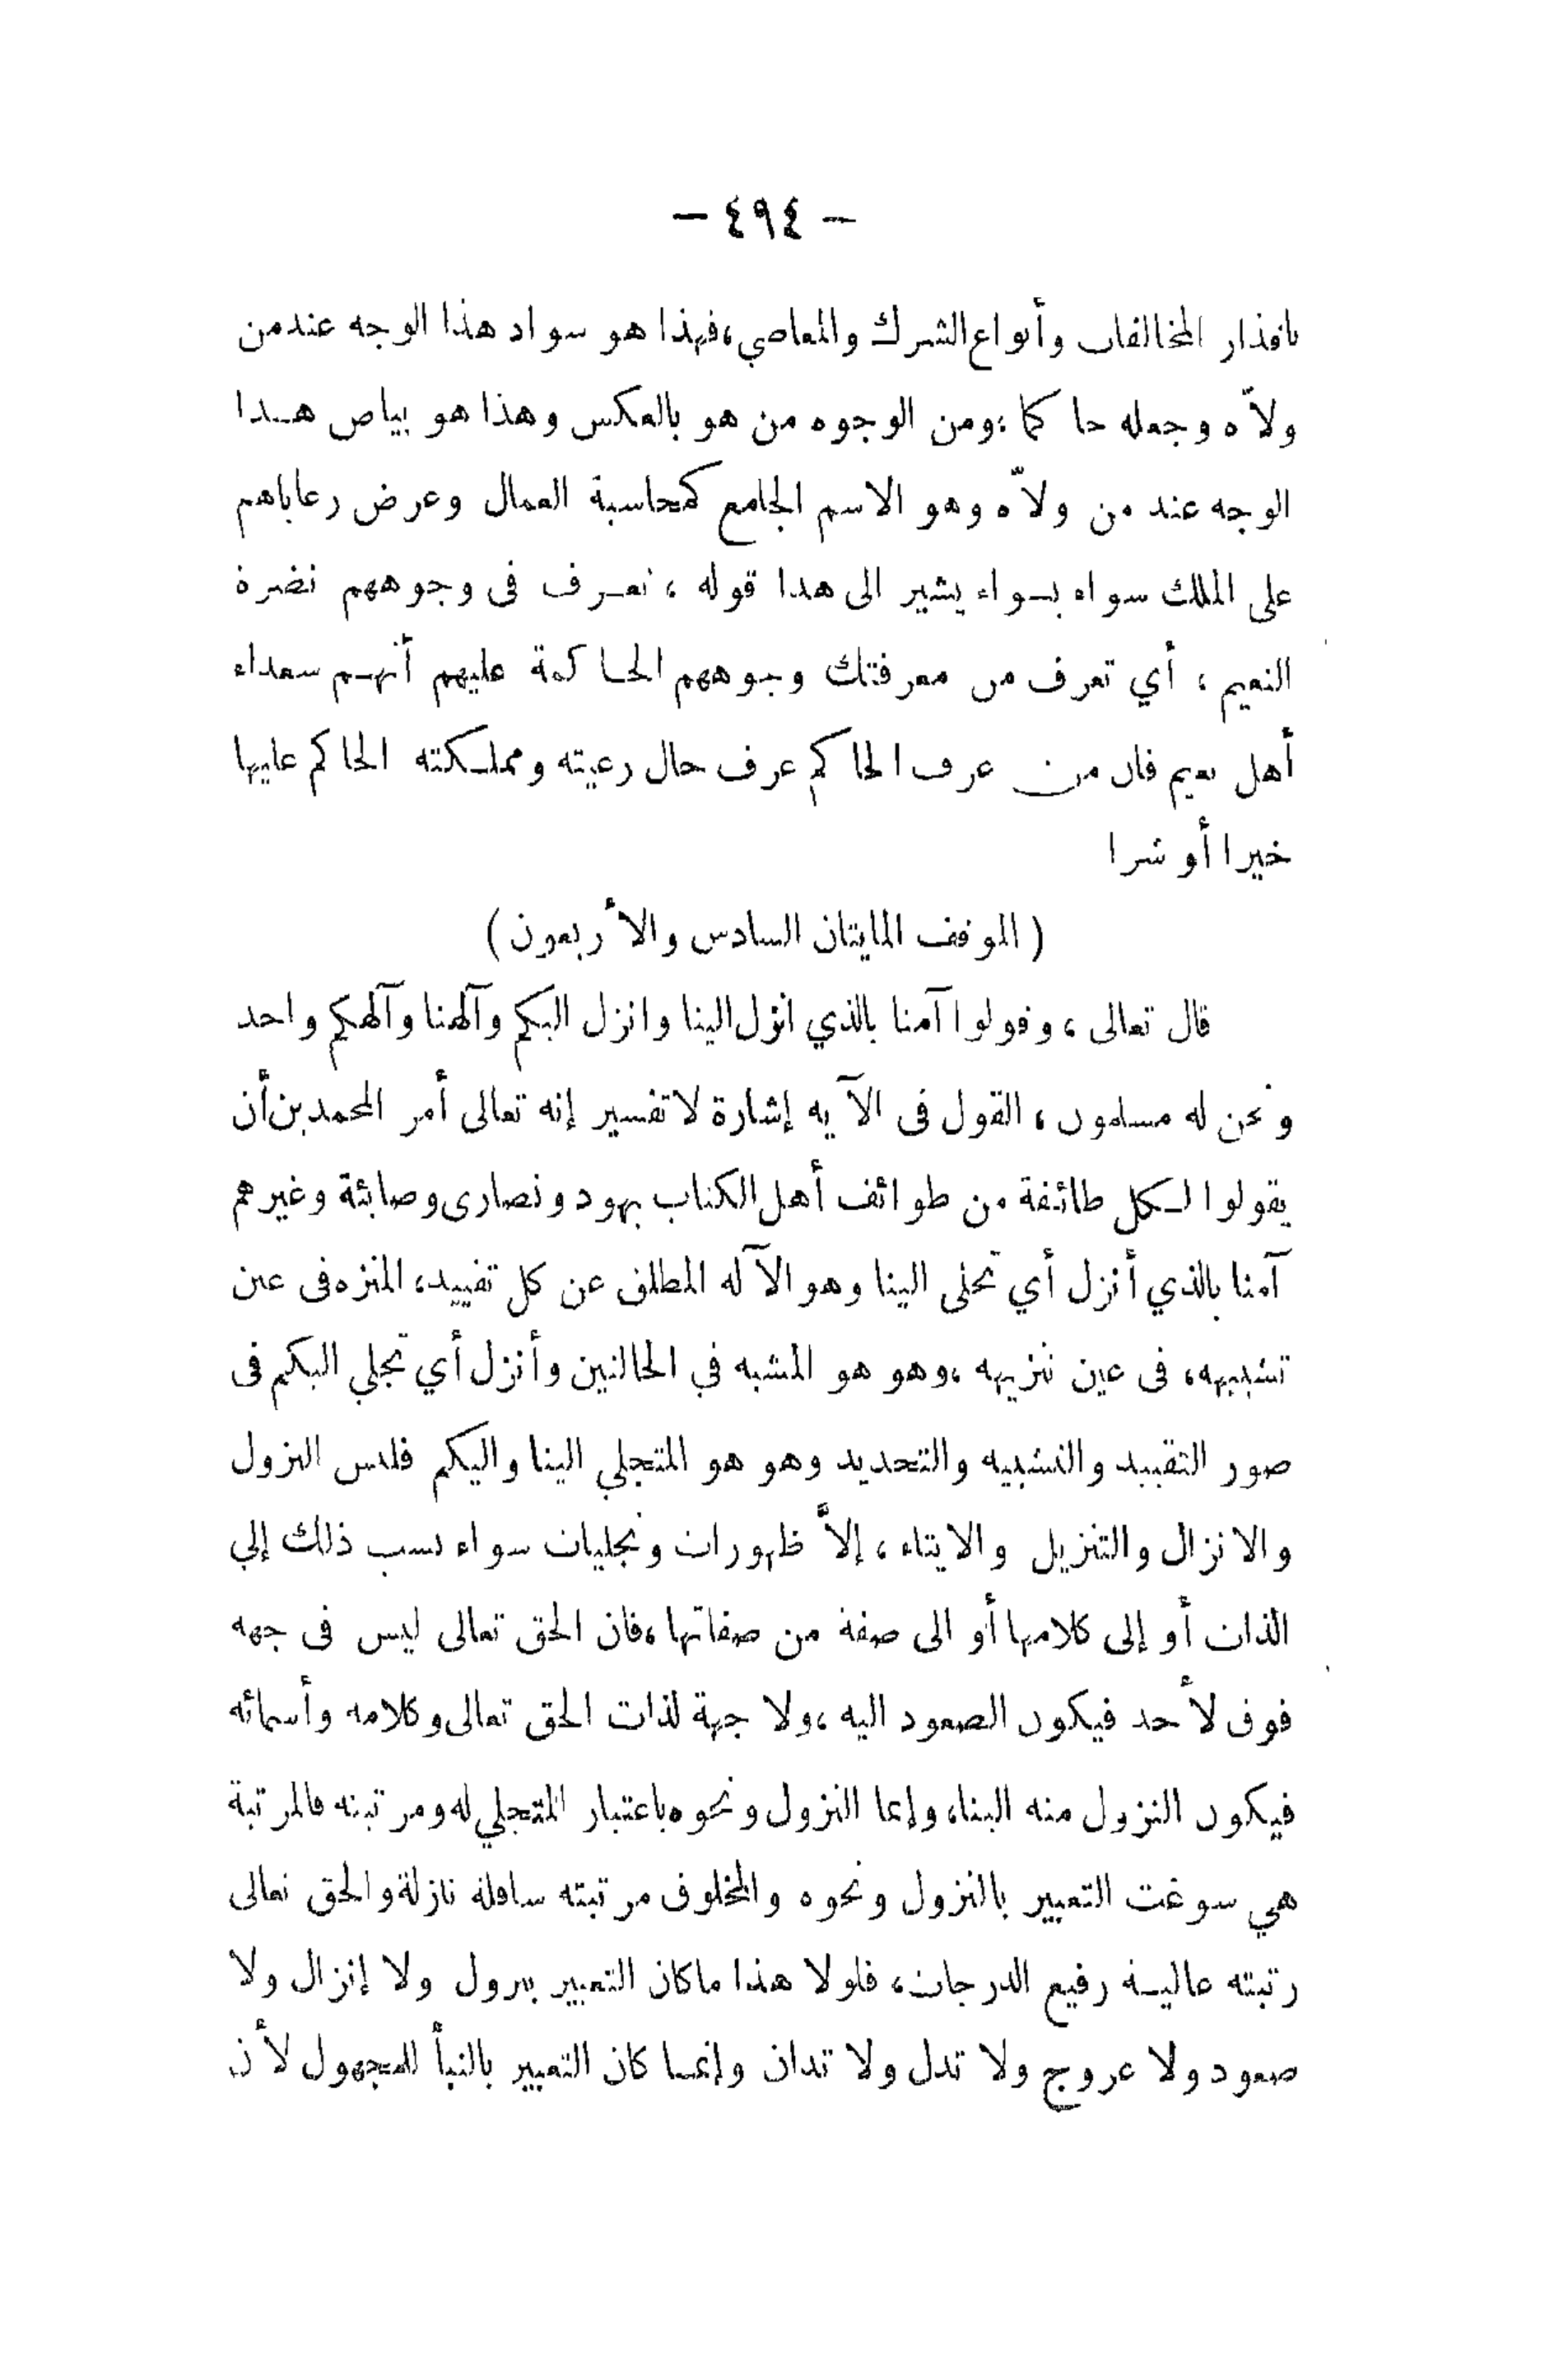 — ٤٩٤ —
باقذار المخالفات وأنواع الشرك والمعاصي، فهذا هو سواد هذا الوجه عند من
ولاّه وجعله حاكما ؛ومن الوجوه من هو بالعكس وهذا هو بياض هـذا
الوجه عند من ولاّه وهو الاسم الجامع كمحاسبة العمال وعرض رعاياهم
على الملك سواء بسواء يشير الى هذا قوله ، تعـرف فى وجوههم نضرة
النعيم ، أي تعرف من معرفتك وجوههم الحـاكمة عليهم أنهـم سعداء
أهل نعيم فان من عرف الحاكم عرف حال رعيته ومملـكته الحاكم عليها
خيرا أو شرا
( الموقف المايتان السادس والأربعون )
قال تعالى ، وقولوا آمنا بالذي انزل الينا وانزل اليكم وآلهنا وآلهكم واحد
ونحن له مسلمون ، القول فى الآيه إشارة لا تفسير إنه تعالى أمر المحمدين أن
يقولوا لـكل طائفة من طوائف أهل الكتاب يهود ونصارى وصابئة وغيرهم
آمنا بالذي أنزل أي تجلى الينا وهو الآله المطلق عن كل تقييد، المنزه فى عين
تشبيهه، فى عين تنزيهه ،وهو هو المشبه في الحالتين وأنزل أي تجلي اليكم فى
صور التقييد والتشبيه والتحديد وهو هو المتجلي الينا واليكم فليس النزول
والانزال والتنزيل والايتاء ، إلاَّ ظهورات وتجليات سواء نسب ذلك إلي
الذات أو إلى كلامها أو الى صفة من صفاتها ،فان الحق تعالى ليس فى جهه
فوق لأحد فيكون الصعود اليه ،ولا جهة لذات الحق تعالى وكلامه وأسمائه
فيكون النزول منه الينا، وإنما النزول ونحوه باعتبار المتجلي له ومرتبته فالمرتبة
هي سوغت التعبير بالنزول ونحوه والمخلوق مرتبته سافلة نازلة والحق تعالى
رتبته عاليـة رفيع الدرجات، فلولا هذا ما كان التعبير بنزول ولا إنزال ولا
صعود ولا عروج ولا تدل ولا تدان وإنمـا كان التعبير بالنبأ للمجهول لأن